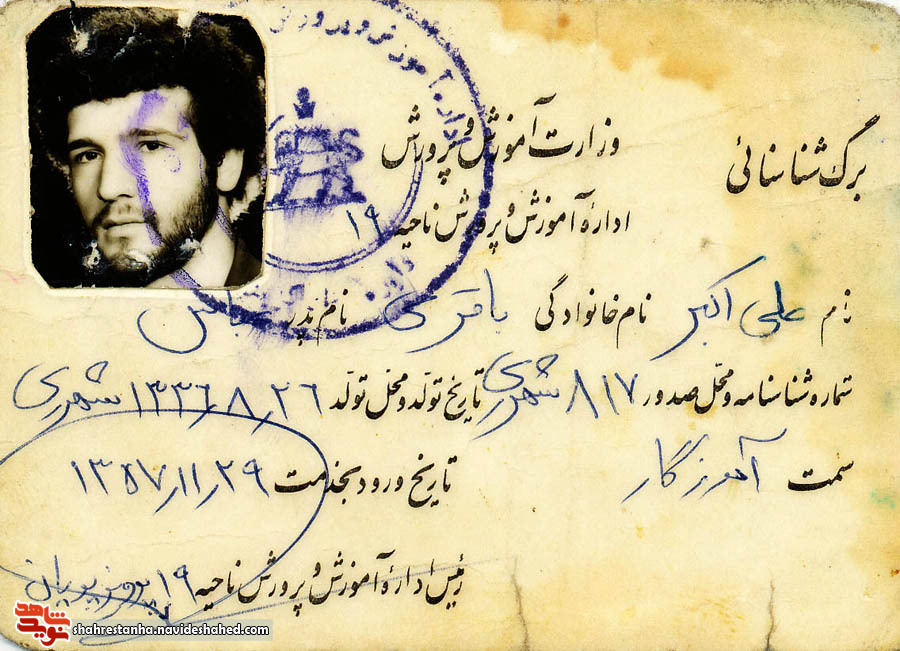 برگ شناسائی
وزارت آموزش و پرورش
ادارهٔ آموزش و پرورش ناحیه ۱۹
نام علی اکبر نام خانوادگی باقری نام پدر عباس
شماره شناسنامه و محل صدور ۸۱۷ شهرری تاریخ تولد و محل تولد ۱۳۳۶/۸/۲۶ شهرری
سمت آموزگار تاریخ ورود بخدمت ۱۳۵۷/۱۱/۲۹
رئیس ادارهٔ آموزش و پرورش ناحیه ۱۹
نوید شاهد
shahrestanha.navideshahed.com